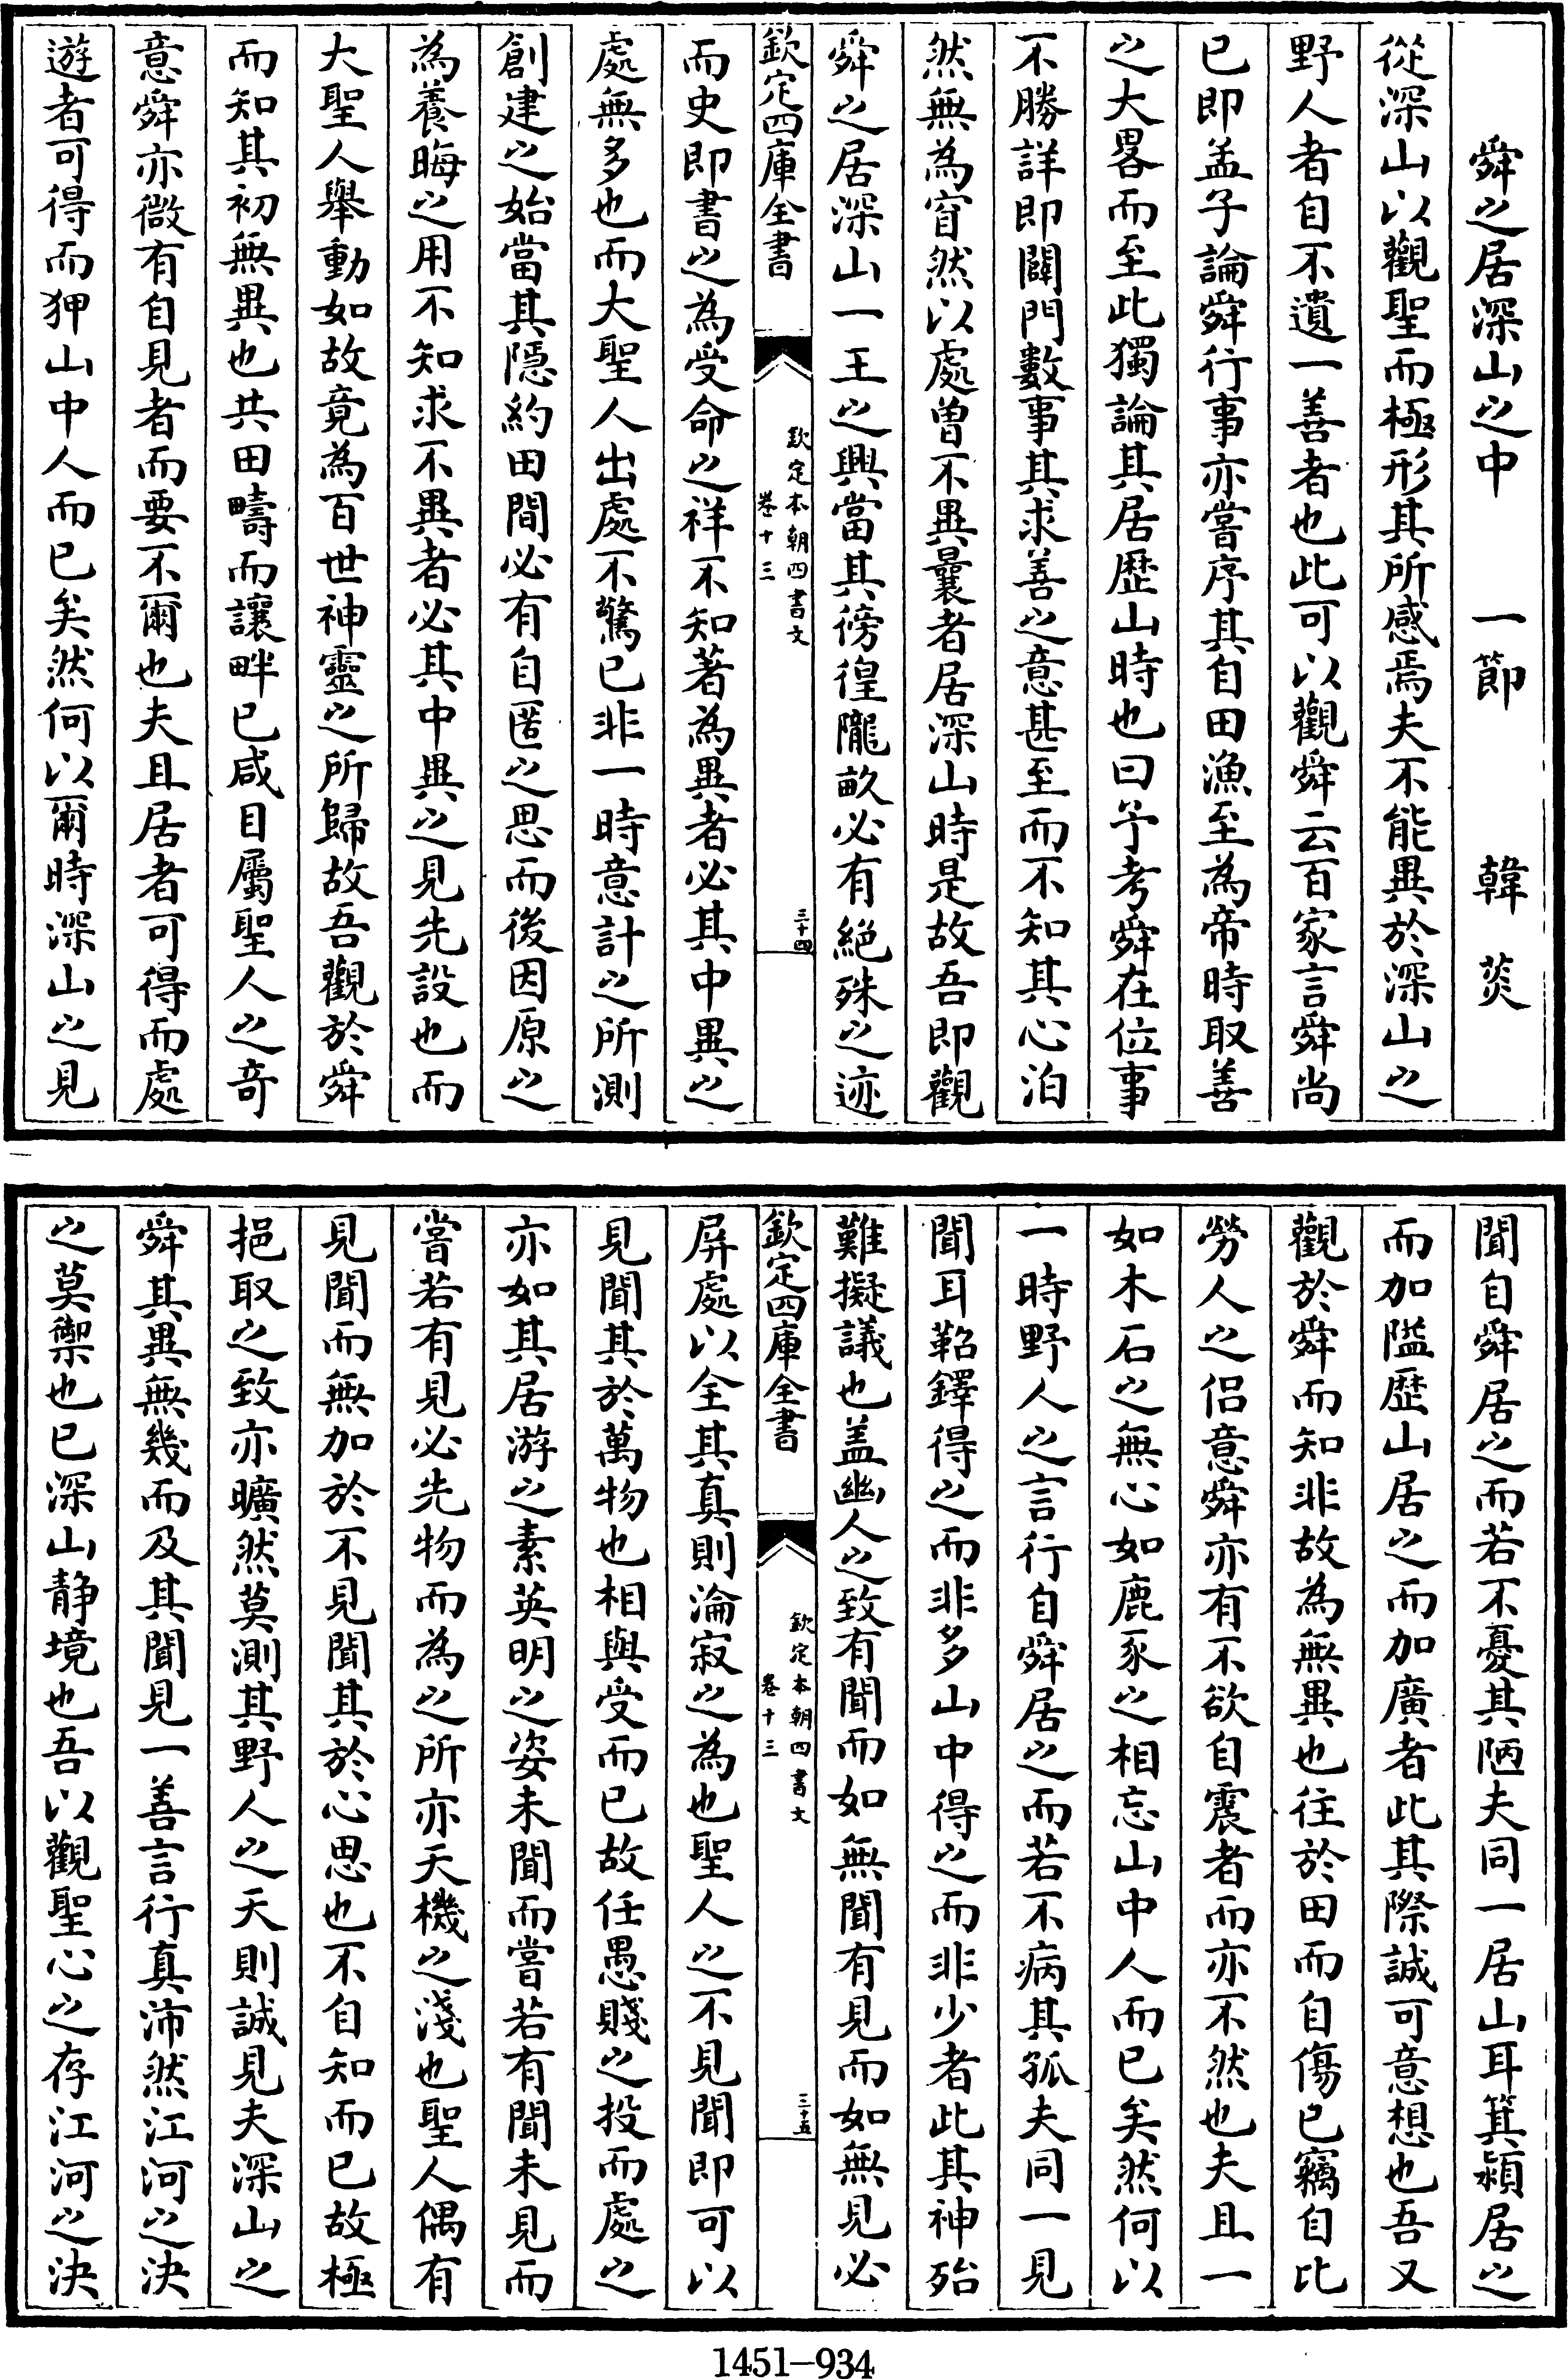 舜之居深山之中　一節　韓菼
從深山以觀聖而極形其所感焉夫不能異於深山之
野人者自不遺一善者也此可以觀舜云百家言舜尚
已即孟子論舜行事亦嘗序其自田漁至為帝時取善
之大畧而至此獨論其居歷山時也曰予考舜在位事
不勝詳即闢門數事其求善之意甚至而不知其心泊
然無為窅然以處曾不異曩者居深山時是故吾即觀
舜之居深山一王之興當其傍徨隴畝必有絕殊之迹
欽定四庫全書
欽定本朝四書文
卷十三
三十四
而史即書之為受命之祥不知著為異者必其中異之
處無多也而大聖人出處不驚已非一時意計之所測
創建之始當其隱約田間必有自匿之思而後因原之
為養晦之用不知求不異者必其中異之見先設也而
大聖人舉動如故竟為百世神靈之所歸故吾觀於舜
而知其初無異也共田疇而讓畔已咸目屬聖人之奇
意舜亦微有自見者而要不爾也夫且居者可得而處
遊者可得而狎山中人而已矣然何以爾時深山之見
聞自舜居之而若不憂其陋夫同一居山耳箕潁居之
而加隘歷山居之而加廣者此其際誠可意想也吾又
觀於舜而知非故為無異也往於田而自傷已竊自比
勞人之侣意舜亦有不欲自震者而亦不然也夫且一
如木石之無心如鹿豕之相忘山中人而已矣然何以
一時野人之言行自舜居之而若不病其孤夫同一見
聞耳鞀鐸得之而非多山中得之而非少者此其神殆
難擬議也盖幽人之致有聞而如無聞有見而如無見必
欽定四庫全書
欽定本朝四書文
卷十三
三十五
屏處以全其真則淪寂之為也聖人之不見聞即可以
見聞其於萬物也相與受而已故任愚賤之投而處之
亦如其居游之素英明之姿未聞而嘗若有聞未見而
嘗若有見必先物而為之所亦天機之淺也聖人偶有
見聞而無加於不見聞其於心思也不自知而已故極
挹取之致亦曠然莫測其野人之天則誠見夫深山之
舜其異無幾而及其聞見一善言行真沛然江河之決
之莫禦也已深山静境也吾以觀聖心之存江河之決
1451-934